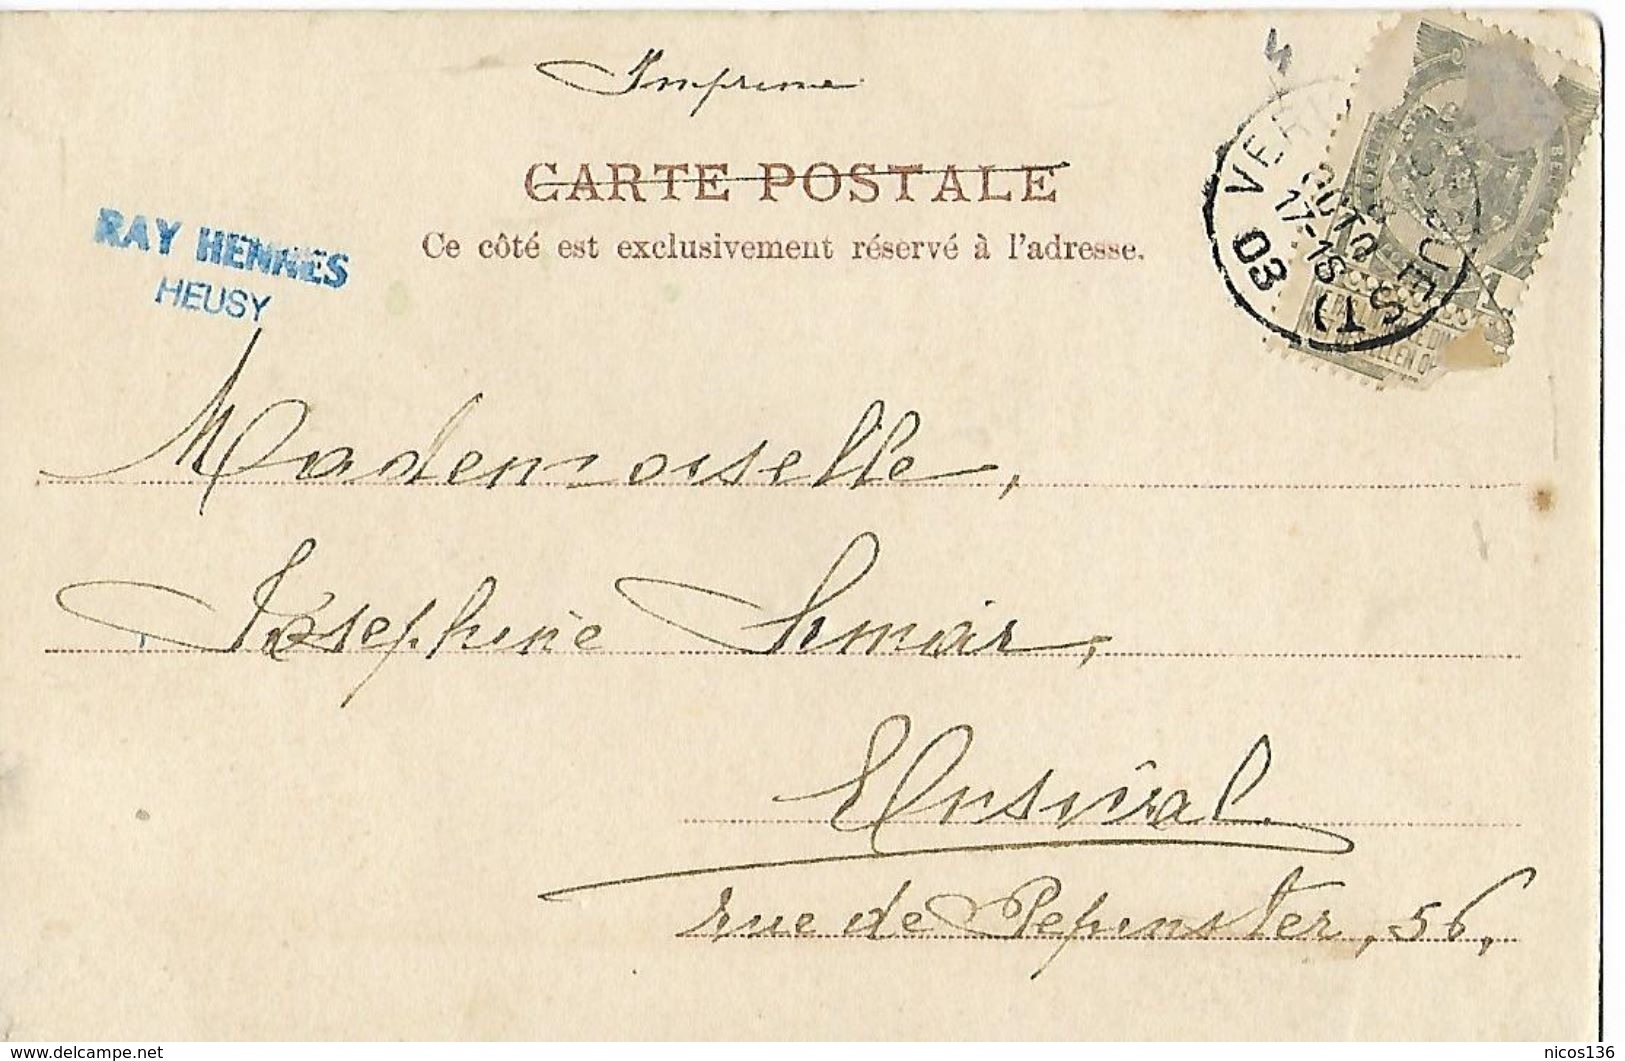 Imprimé
CARTE POSTALE
Ce côté est exclusivement réservé à l'adresse.
RAY HENNES
HEUSY
VER
OCTO
17-18
03
Mademoiselle,
Joséphine Simar,
Ensival
rue de Pepinster, 56,
www.delcampe.net
nicos136